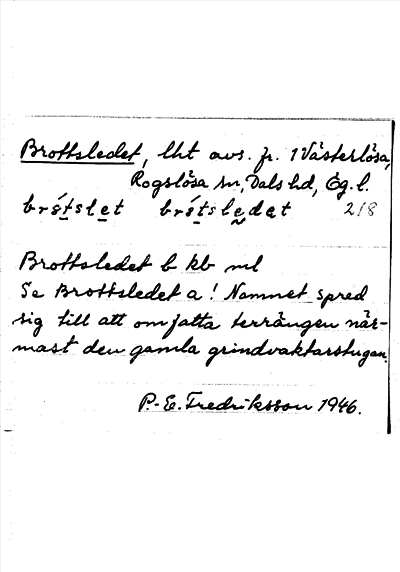 Brottsledet, lht avs. fr. 1 Västerlösa,
Rogslösa sn, Dals hd, Ög. l.
bró̱ts̱le̱t bró̱ts̱le̱dat 218
Brottsledet b kb ml
Se Brottsledet a! Namnet spred
sig till att omfatta terrängen när-
mast den gamla grindvaktarstugan.
P.-E. Fredriksson 1946.